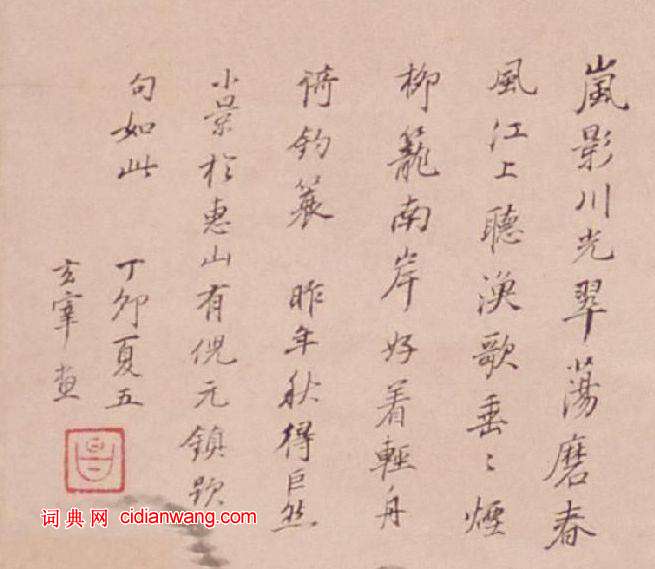 嵐影川光翠蕩磨春
風江上聽漁歌垂〻煙
柳籠南岸好着輕舟
倚釣蓑 昨年秋得巨然
小景於惠山有倪元鎮題
句如此 丁卯夏五
玄宰畫
词典网 cidianwang.com